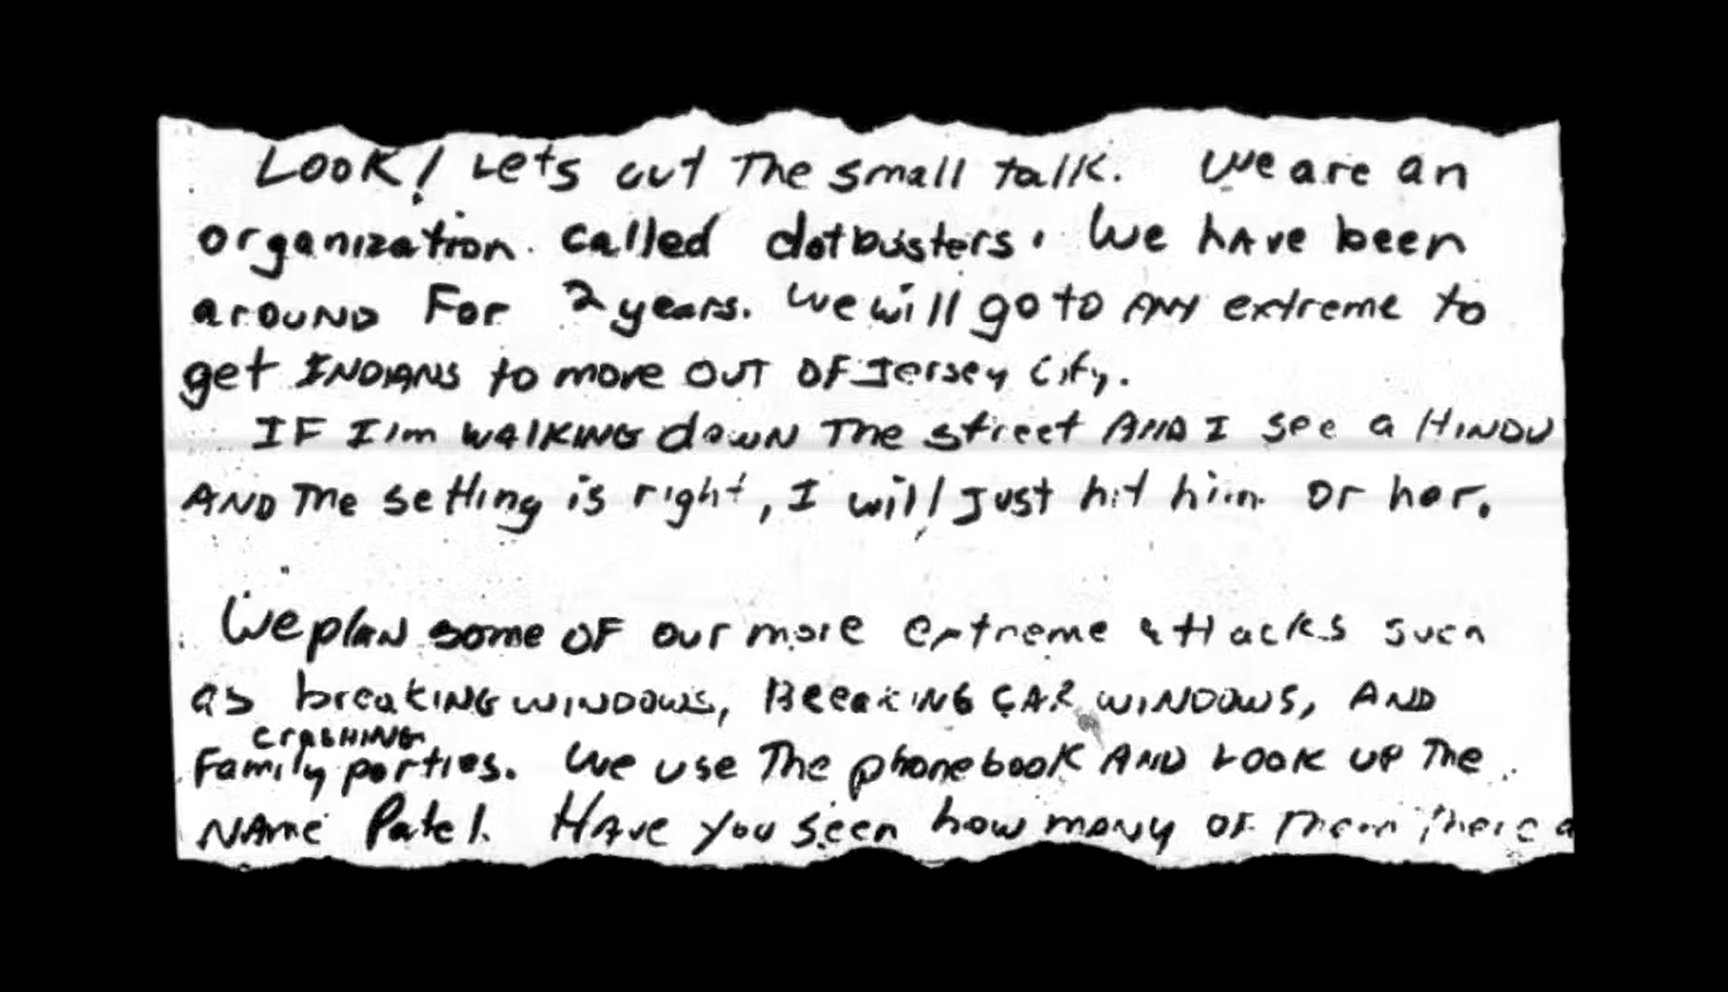 LOOK! Lets cut The small talk. We are an
organization. called dotbusters. We have been
around For 2 years. We will go to ANY extreme to
get INDIANS to move OUT OF Jersey City.
IF I'm WALKING down The street AND I see a HINDU
AND The setting is right, I will Just hit him or her.
We plan some OF our more extreme attacks such
as breaking WINDOWS, Breaking CAR WINDOWS, AND
crashing
Family parties. We use The phonebook AND LOOK UP The
NAme Patel. Have you seen how many of Them There a